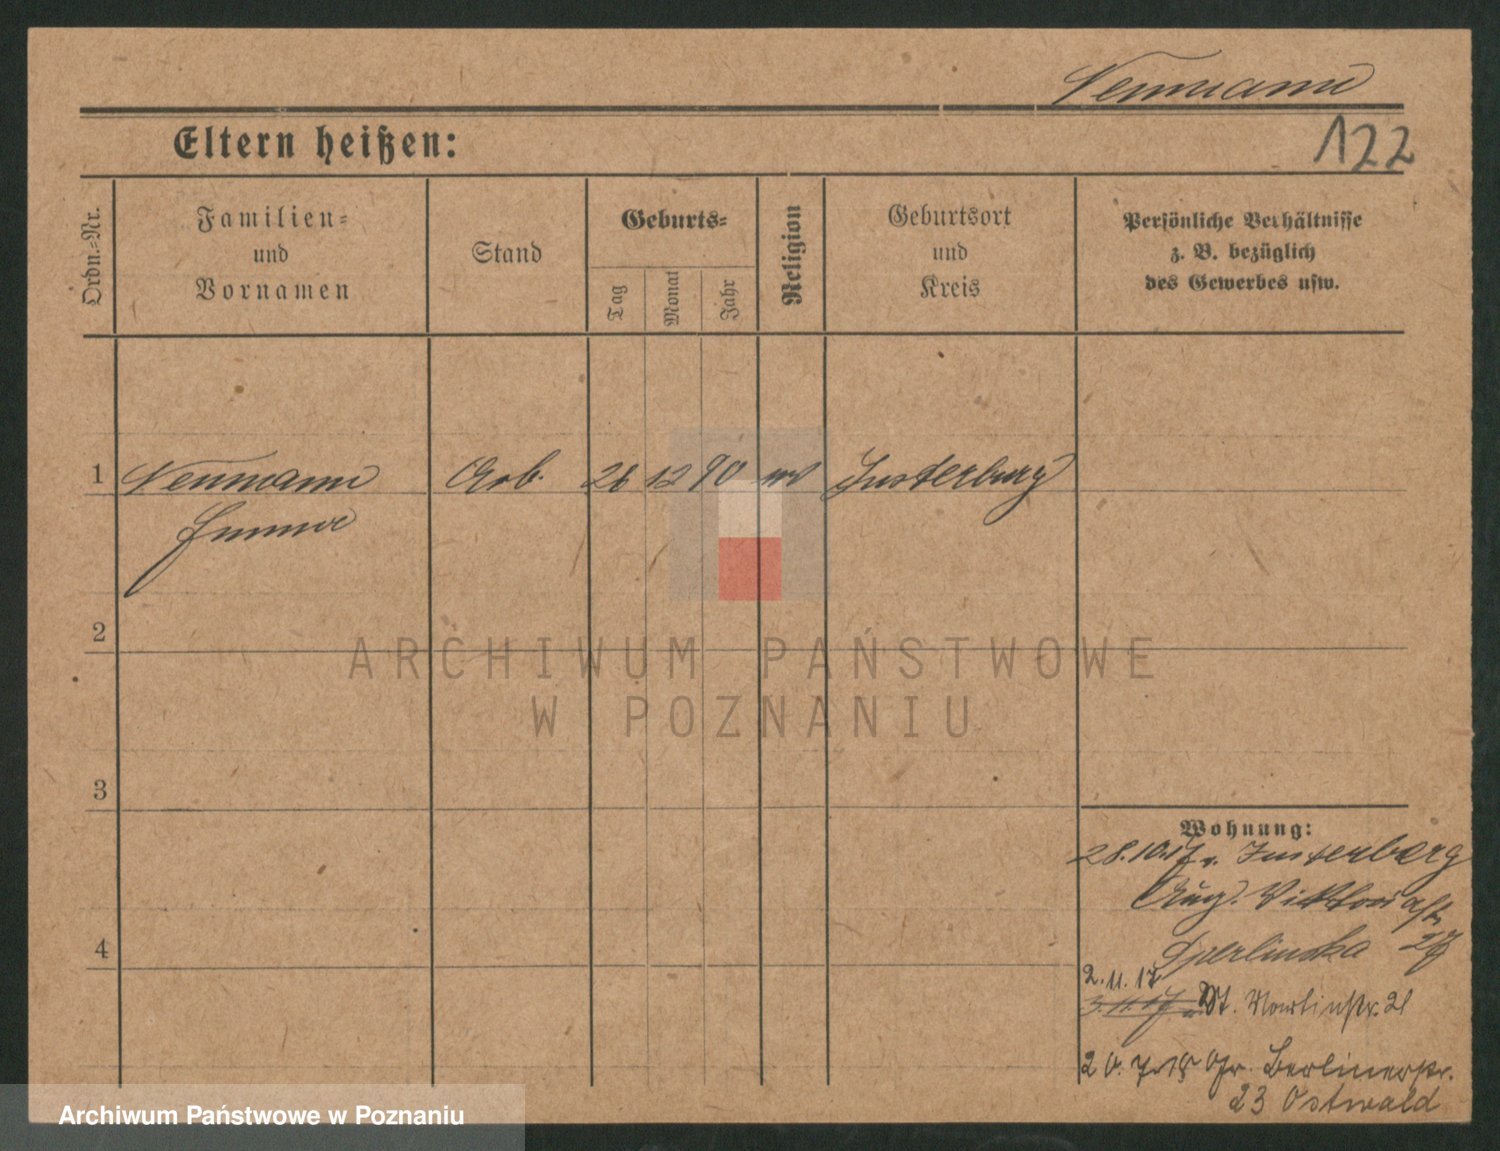 Neumann
122
Eltern heißen:
Ordn.=Nr.
Familien=
und
Vornamen
Stand
Geburts=
Tag
Monat
Jahr
Religion
Geburtsort
und
Kreis
Persönliche Verhältnisse
z. B. bezüglich
des Gewerbes usw.
1 Neumann Arb. 26 12 90 Insterburg
Emma
2
3
4
Wohnung:
28.10.17 v. Insterburg
Aug. Viktoriastr. 27
Sperlinska
2.11.17
3.11.17 St. Martinstr. 21
20.7.18 Gr. Berlinerstr.
23 Ostwald
ARCHIWUM PAŃSTWOWE
W POZNANIU
Archiwum Państwowe w Poznaniu